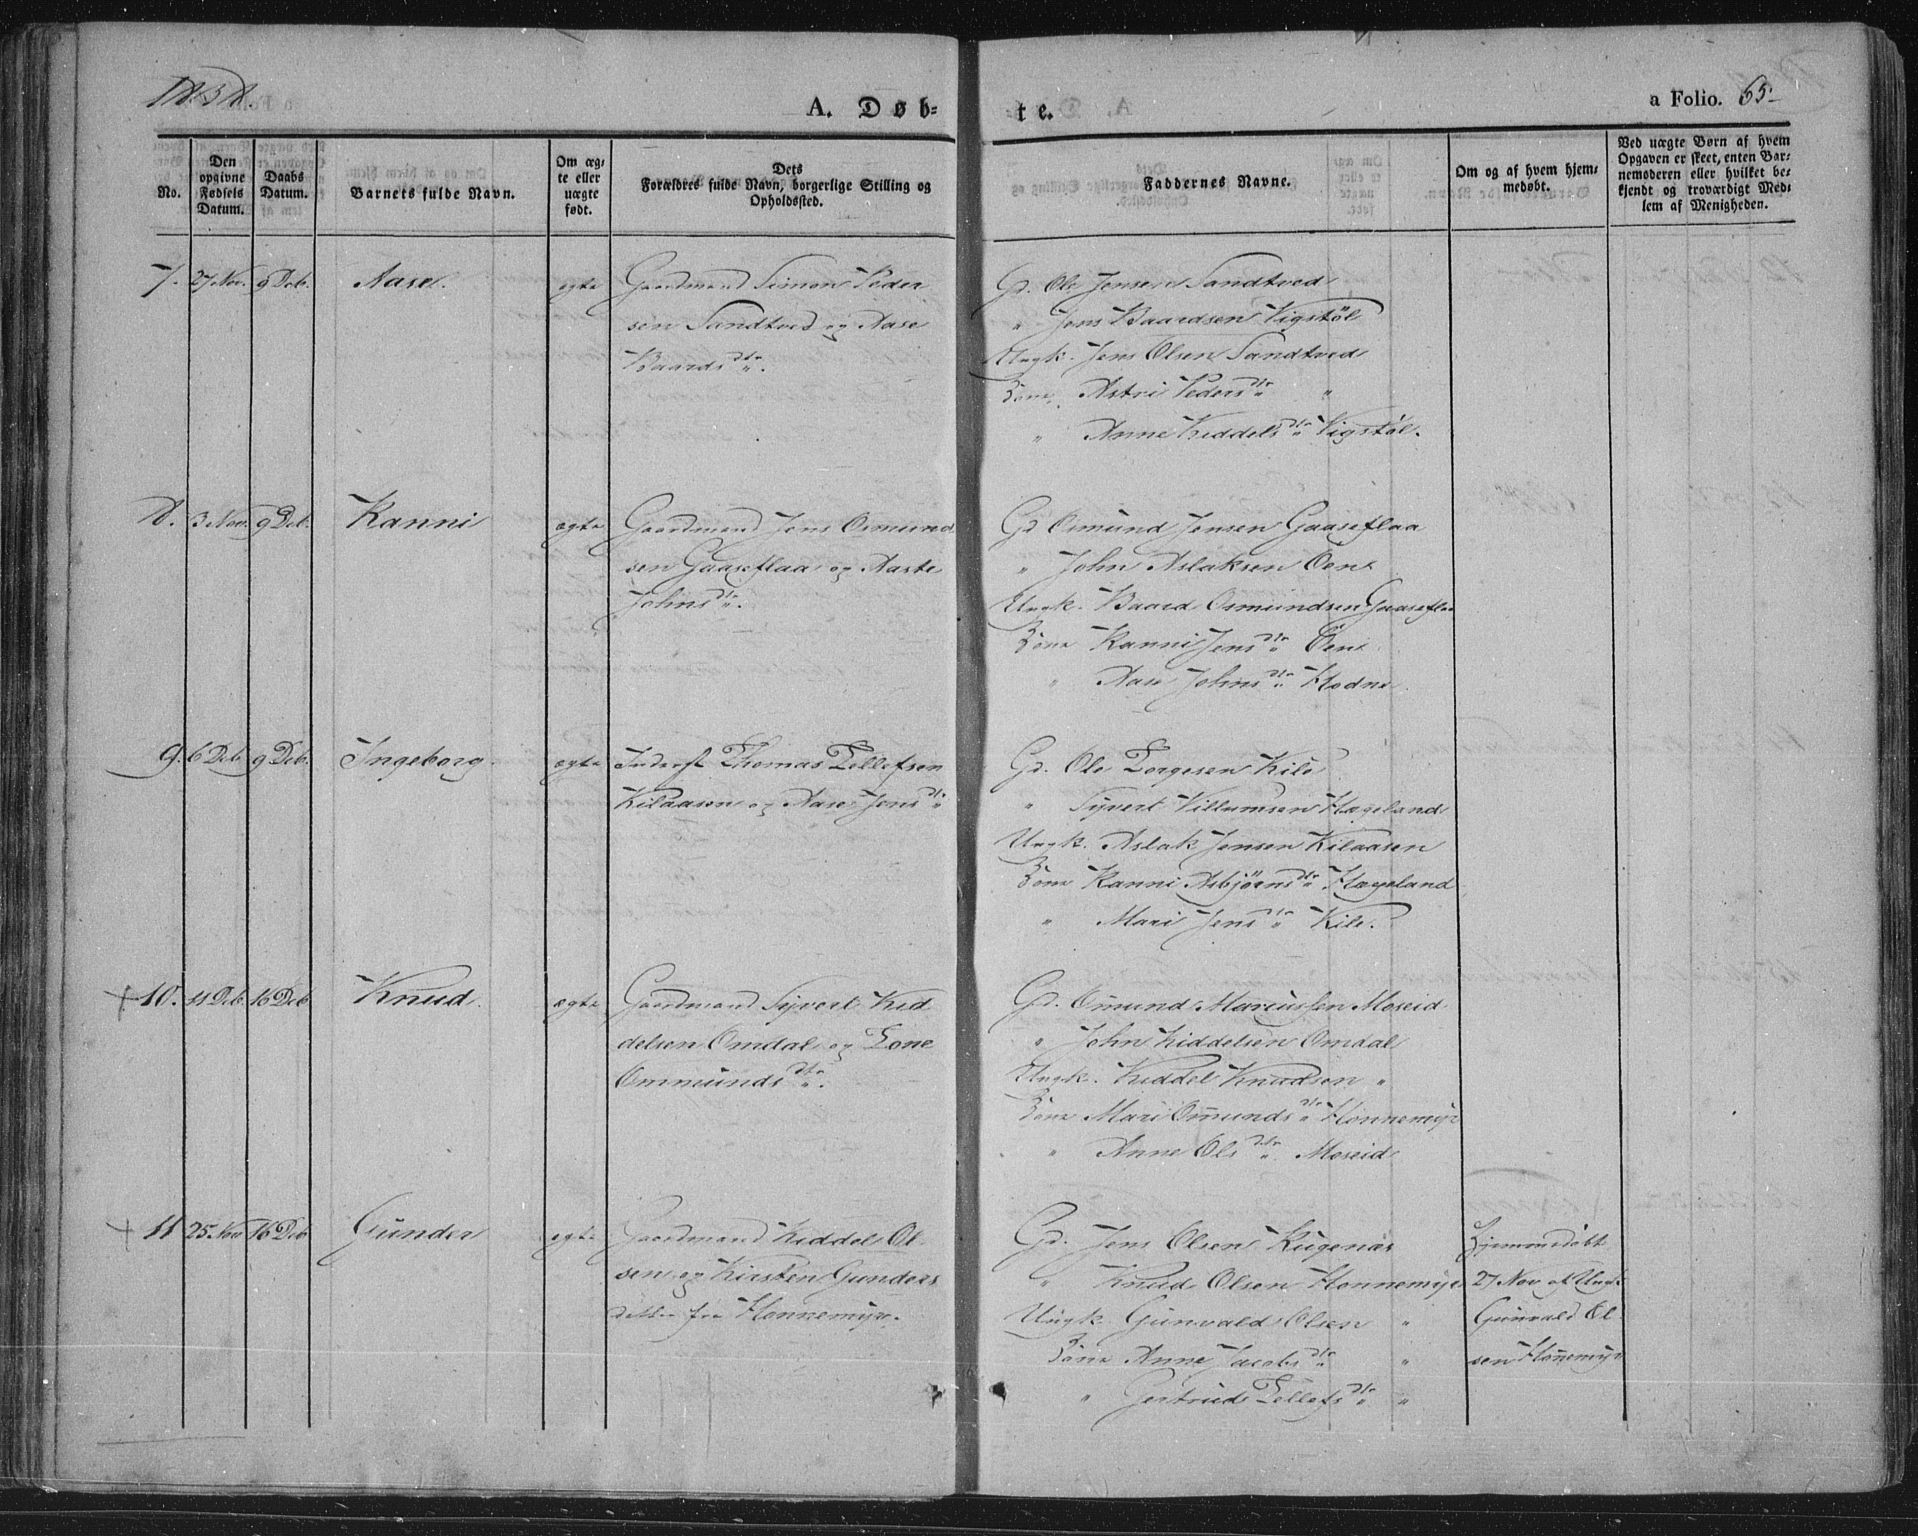 1838.
A. Døb-
te.
a Folio. 65.
No.
Den
opgivne
Fødsels
Datum.
Daabs
Datum.
Barnets fulde Navn.
Om æg-
te eller
uægte
født.
Dets
Forældres fulde Navn, borgerlige Stilling og
Opholdssted.
Faddernes Navne.
Om og af hvem hjem-
medøbt.
Ved uægte Børn af hvem
Opgaven er skeet, enten Bar-
nemoderen eller hvilket be-
kjendt og troværdigt Med-
lem af Menigheden.
7. 27 Nov. 9 Deb. Aase. ægte
Gaardmand Simon Peder
sen Sandtved og Aase
Baardsdtr.
Gd. Ole Jensen Sandtved
" Jens Baardsen Vigstøl
Ungk. Jens Olsen Sandtved
Kone Astri Pedersdtr "
" Anne Kiddelsdtr Vigstøl.
8. 3 Nov. 9 Deb. Kanni ægte
Gaardmand Jens Osmund
sen Gaaseflaa og Aaste
Johnsdtr.
Gd Osmund Jensen Gaaseflaa
" John Aslaksen Øene
Ungk. Baard Osmundsen Gaasefla
Kone Kanni Jensdtr Øene
" Aase Johnsdtr Hodne
9. 6 Deb 9 Deb. Ingeborg ægte
Inderst Thomas Tellefsen
Kilaasen og Aase Jensdtr
Gd. Ole Torgesen Kile
" Syvert Villumsen Hægeland
Ungk. Aslak Jensen Kilaasen
Kone Kanni Asbjørnsdtr Hægeland
" Mari Jensdtr Kile.
+ 10. 11 Deb. 16 Deb. Knud. ægte
Gaardmand Syvert Kid
delsen Omdal og Tone
Ommundsdtr.
Gd. Om̄und Mariussen Moseid
" John Kiddelsen Omdal
Ungk. Kiddel Knudsen "
Kone Mari Om̄undsdtr Honnemyr
" Anne Olsdtr Moseid
+ 11 25 Nov 16 Deb Gunder ægte
Gaardmand Kiddel Ol-
sen og Kirsten Gunders
datter fra Honnemyr.
Gd. Jens Olsen Rugenæs
" Knud Olsen Honnemyr
Ungk. Gunvald Olsen "
Kone Anne Jacobsdtr "
" Gertrud Tellefsdtr "
Hjemmedøbt
27 Nov af Ungk
Gunvald Ol-
sen Hon̄emyr